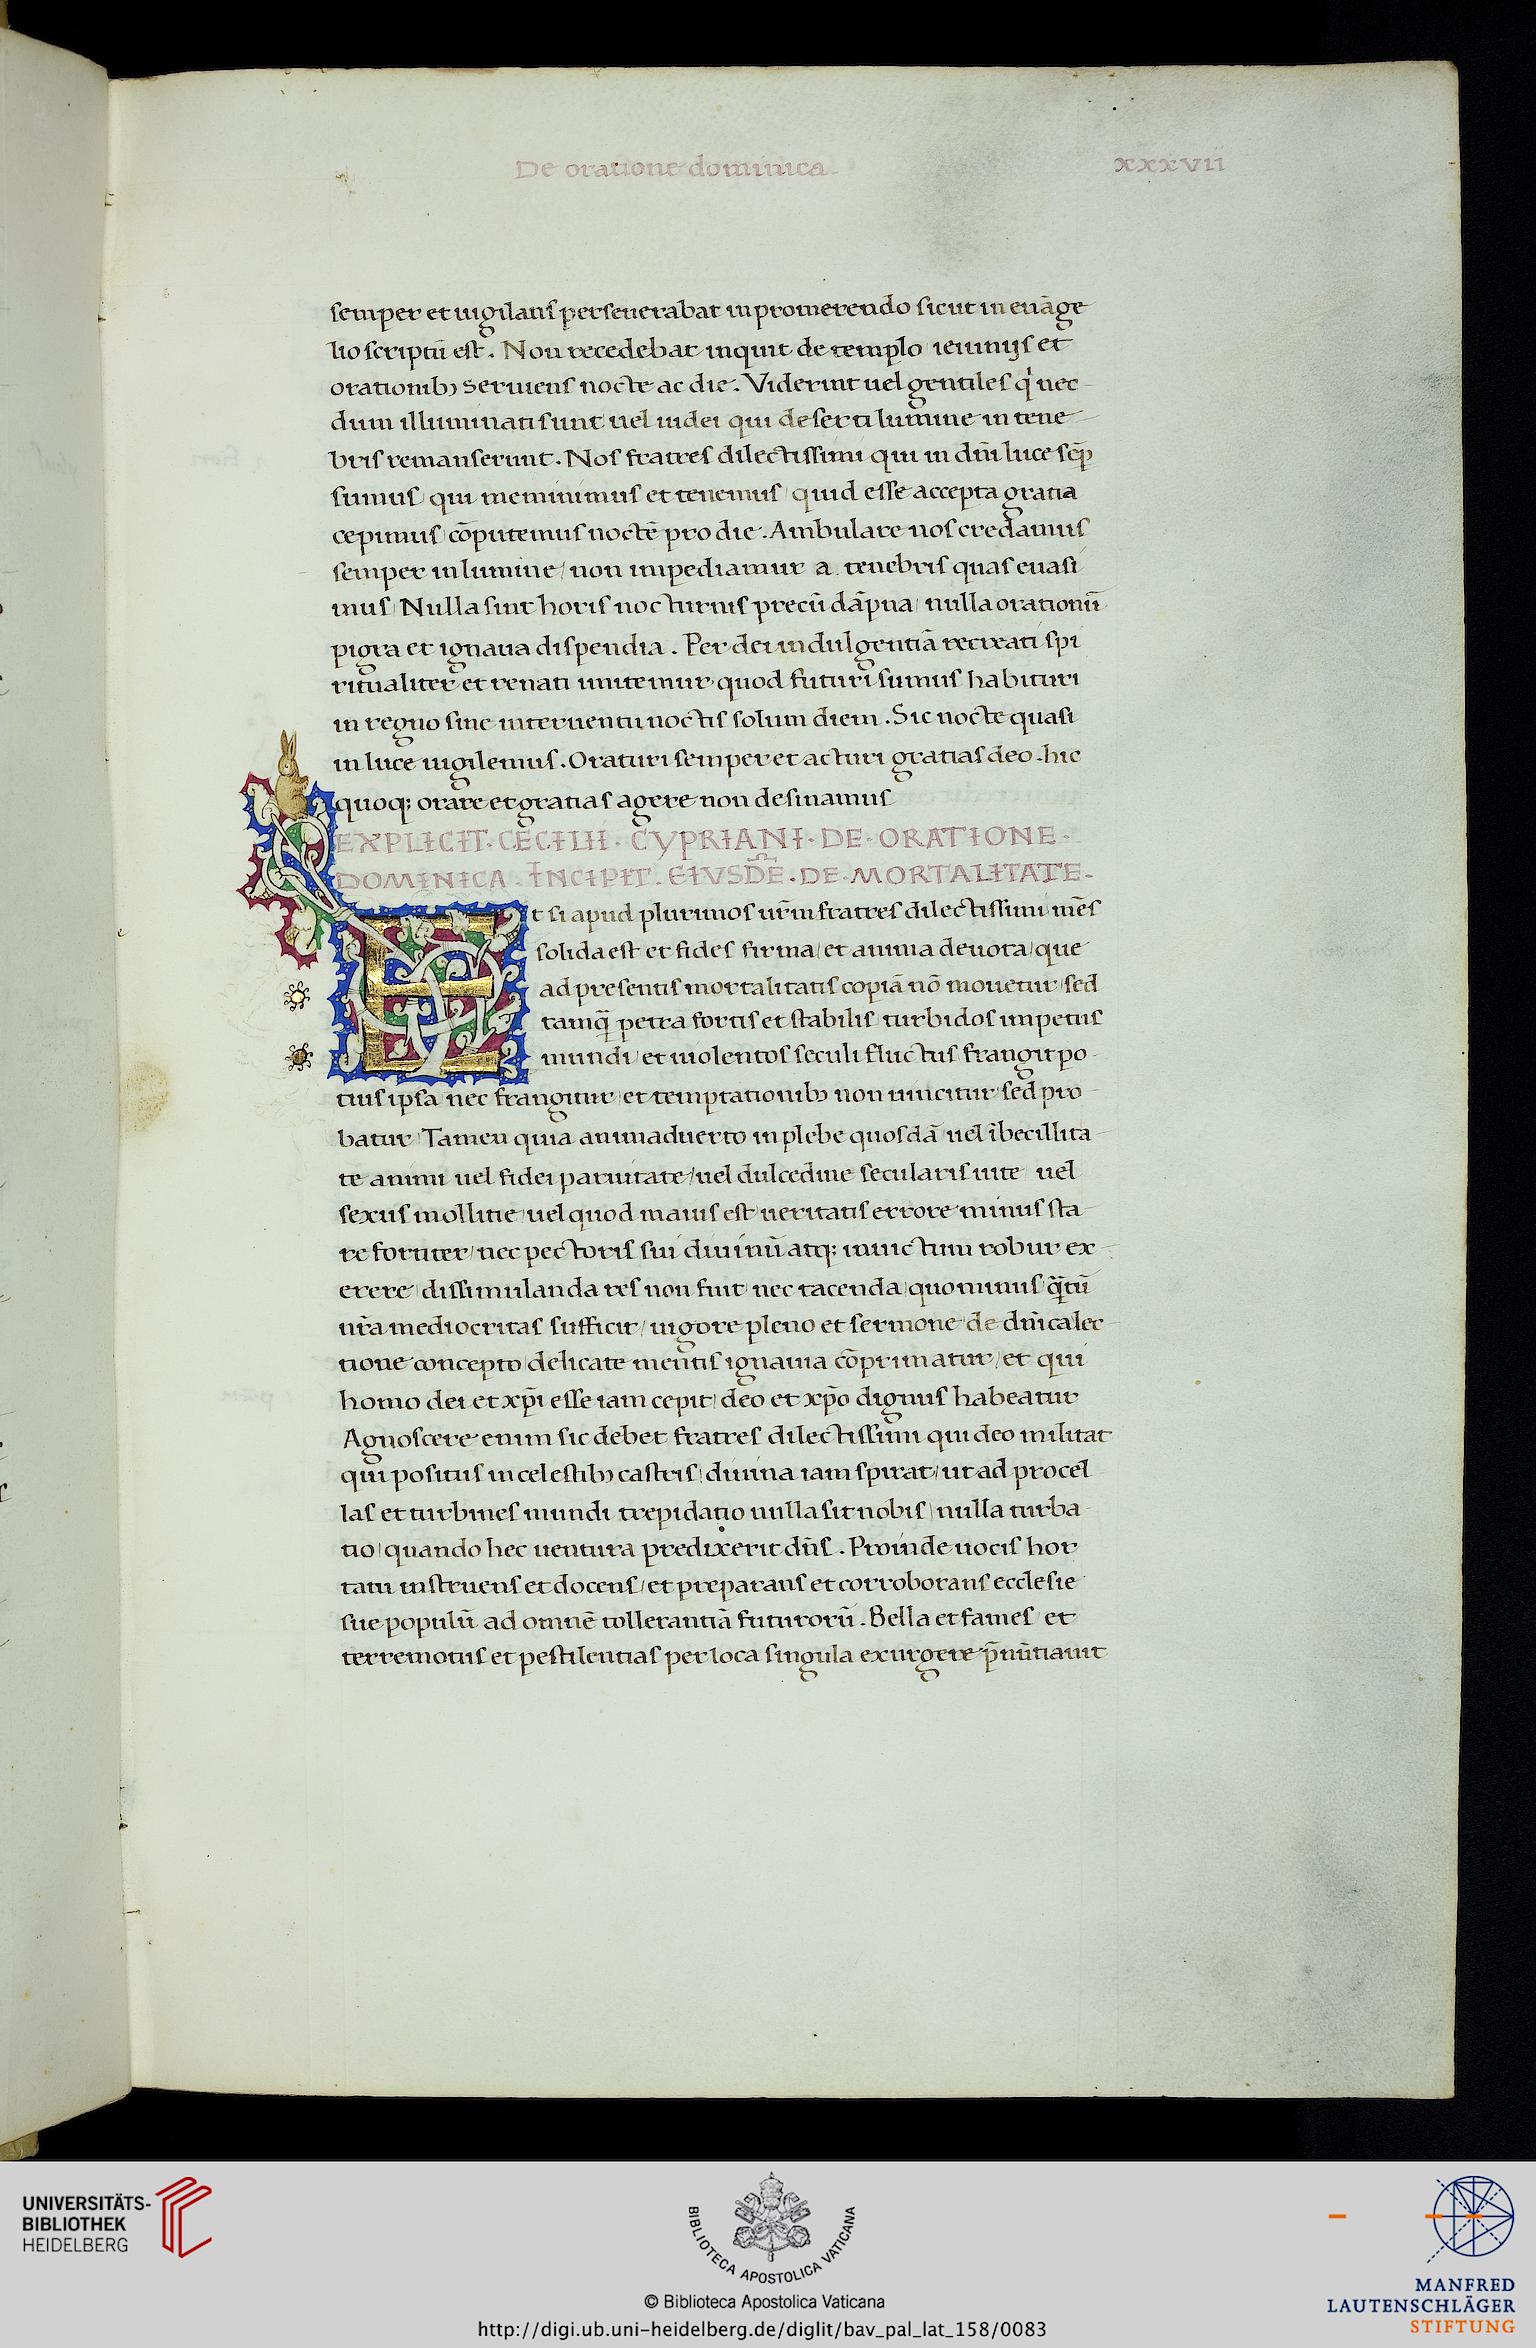 De oratione dominica
xxxvii
semper et uigilans perseuerabat in promerendo sicut in euāge
lio scriptū est. Non recedebat inquit de templo ieiunijs et
orationibꝫ seruiens nocte ac die. Viderint uel gentiles q' nec
dum illuminati sunt uel iudei qui deserti lumine in tene
bris remanserunt. Nos fratres dilectissimi qui in dn̄i luce sēp
sumus qui meminimus et tenemus quid esse accepta gratia
cepimus cōputemus noctē pro die. Ambulare nos credamus
semper in lumine / non impediamur a tenebris quas euasi
mus / Nulla sint horis nocturnis precū dāpna / nulla orationū
pigra et ignaua dispendia. Per dei indulgentiā recreati spi
ritualiter et renati imitemur quod futuri sumus habituri
in regno sine interuentu noctis solum diem. Sic nocte quasi
in luce uigilemus. Oraturi semper et acturi gratias deo. hic
quoq; orare et gratias agere non desinamus
EXPLICIT. CECILII. CYPRIANI. DE. ORATIONE.
DOMINICA. INCIPIT. EIVSDĒ. DE. MORTALITATE.
Et si apud plurimos ur̄m fratres dilectissimi mēs
solida est et fides firma / et anima deuota / que
ad presentis mortalitatis copiā nō mouetur / sed
tamq̄ petra fortis et stabilis turbidos impetus
mundi / et uiolentos seculi fluctus frangit po
tius ipsa nec frangitur / et temptationibꝫ non uincitur / sed pro
batur / Tamen quia animaduerto in plebe quosdā uel ībecillita
te animi uel fidei paruitate / uel dulcedine secularis uite uel
sexus mollitie / uel quod maius est ueritatis errore minus sta
re fortiter / nec pectoris sui diuinū atq; inuictum robur ex
erere / dissimulanda res non fuit / nec tacenda / quominus q̄tū
nr̄a mediocritas sufficit / uigore pleno et sermone de dn̄ica lec
tione concepto / delicate mentis ignauia cōprimatur / et qui
homo dei et xp̄i esse iam cepit / deo et xp̄o dignus habeatur
Agnoscere enim sic debet fratres dilectissimi qui deo militat
qui positus in celestibꝫ castris / diuina iam spirat / ut ad procel
las et turbines mundi trepidatio nulla sit nobis / nulla turba
tio / quando hec uentura predixerit dn̄s. Proinde uocis hor
tatu instruens et docens / et preparans et corroborans ecclesie
sue populū ad omnē tollerantiā futurorū. Bella et fames et
terremotus et pestilentias per loca singula exurgere p̄nūtiauit
UNIVERSITÄTS-
BIBLIOTHEK
HEIDELBERG
BIBLIOTECA APOSTOLICA VATICANA
© Biblioteca Apostolica Vaticana
http://digi.ub.uni-heidelberg.de/diglit/bav_pal_lat_158/0083
MANFRED
LAUTENSCHLÄGER
STIFTUNG